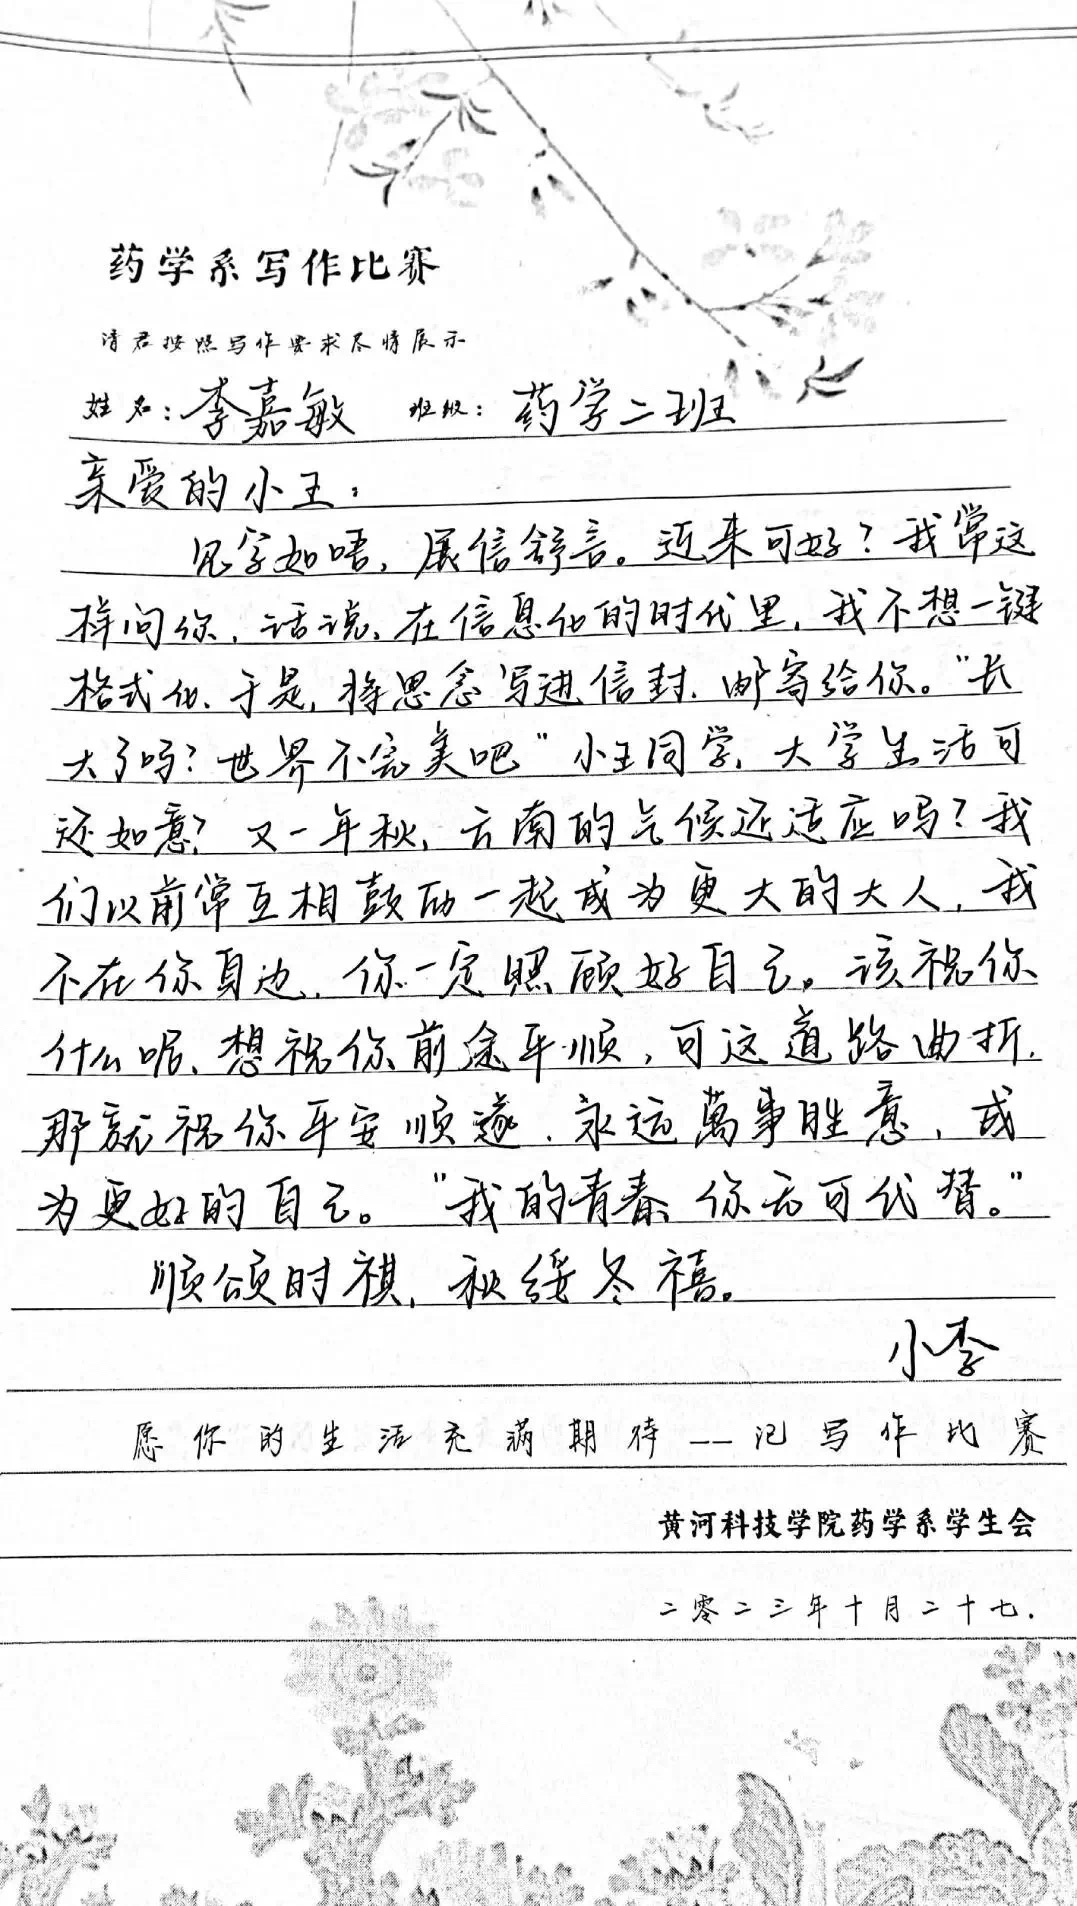 药学系写作比赛
请君按照写作要求尽情展示
姓名：李嘉敏 班级：药学二班
亲爱的小王：
见字如唔，展信舒言。近来可好？我常这
样问你，话说、在信息化的时代里，我不想一键
格式化、于是，将思念写进信封，邮寄给你。“长
大了吗？世界不完美吧”小王同学，大学生活可
还如意？又一年秋，云南的气候还适应吗？我
们以前常互相鼓励一起成为更大的大人，我
不在你身边，你一定照顾好自己。该祝你
什么呢、想祝你前途平顺，可这道路曲折，
那就祝你平安顺遂，永远萬事胜意，成
为更好的自己。“我的青春，你无可代替。”
顺颂时祺，秋绥冬禧。
小李
愿你的生活充满期待——记写作比赛
黄河科技学院药学系学生会
二零二三年十月二十七.